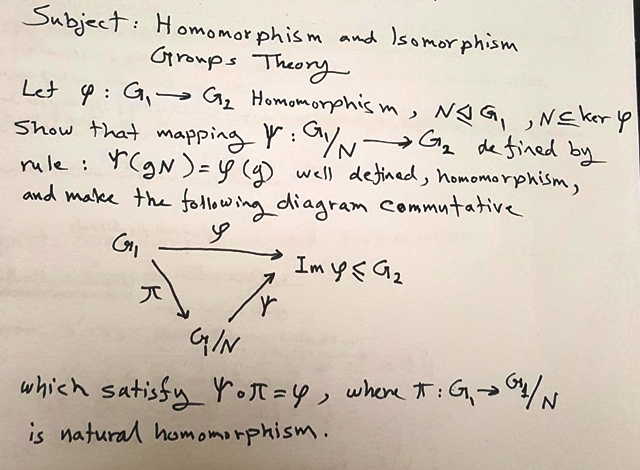 Subject: Homomorphism and Isomorphism
Groups Theory
Let φ: G₁ → G₂ Homomorphism, N⊴G₁, N⊆ker φ
Show that mapping Ψ: G₁/N → G₂ defined by
rule: Ψ(gN)=φ(g) well defined, homomorphism,
and make the following diagram commutative
G₁ φ Im φ ⩽ G₂
π Ψ
G/N
which satisfy Ψ∘π=φ, where π: G₁→G₁/N
is natural homomorphism.